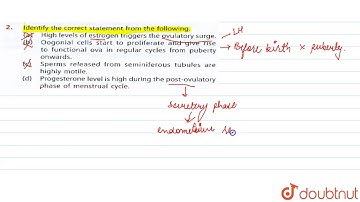 2. Identify the correct statement from the following.
(a) High levels of estrogen triggers the ovulatory surge.
LH
(b) Oogonial cells start to proliferate and give rise
to functional ova in regular cycles from puberty
onwards.
Before birth × puberty.
(c) Sperms released from seminiferous tubules are
highly motile.
(d) Progesterone level is high during the post-ovulatory
phase of menstrual cycle.
secretory phase
endometrium se
doubtnut